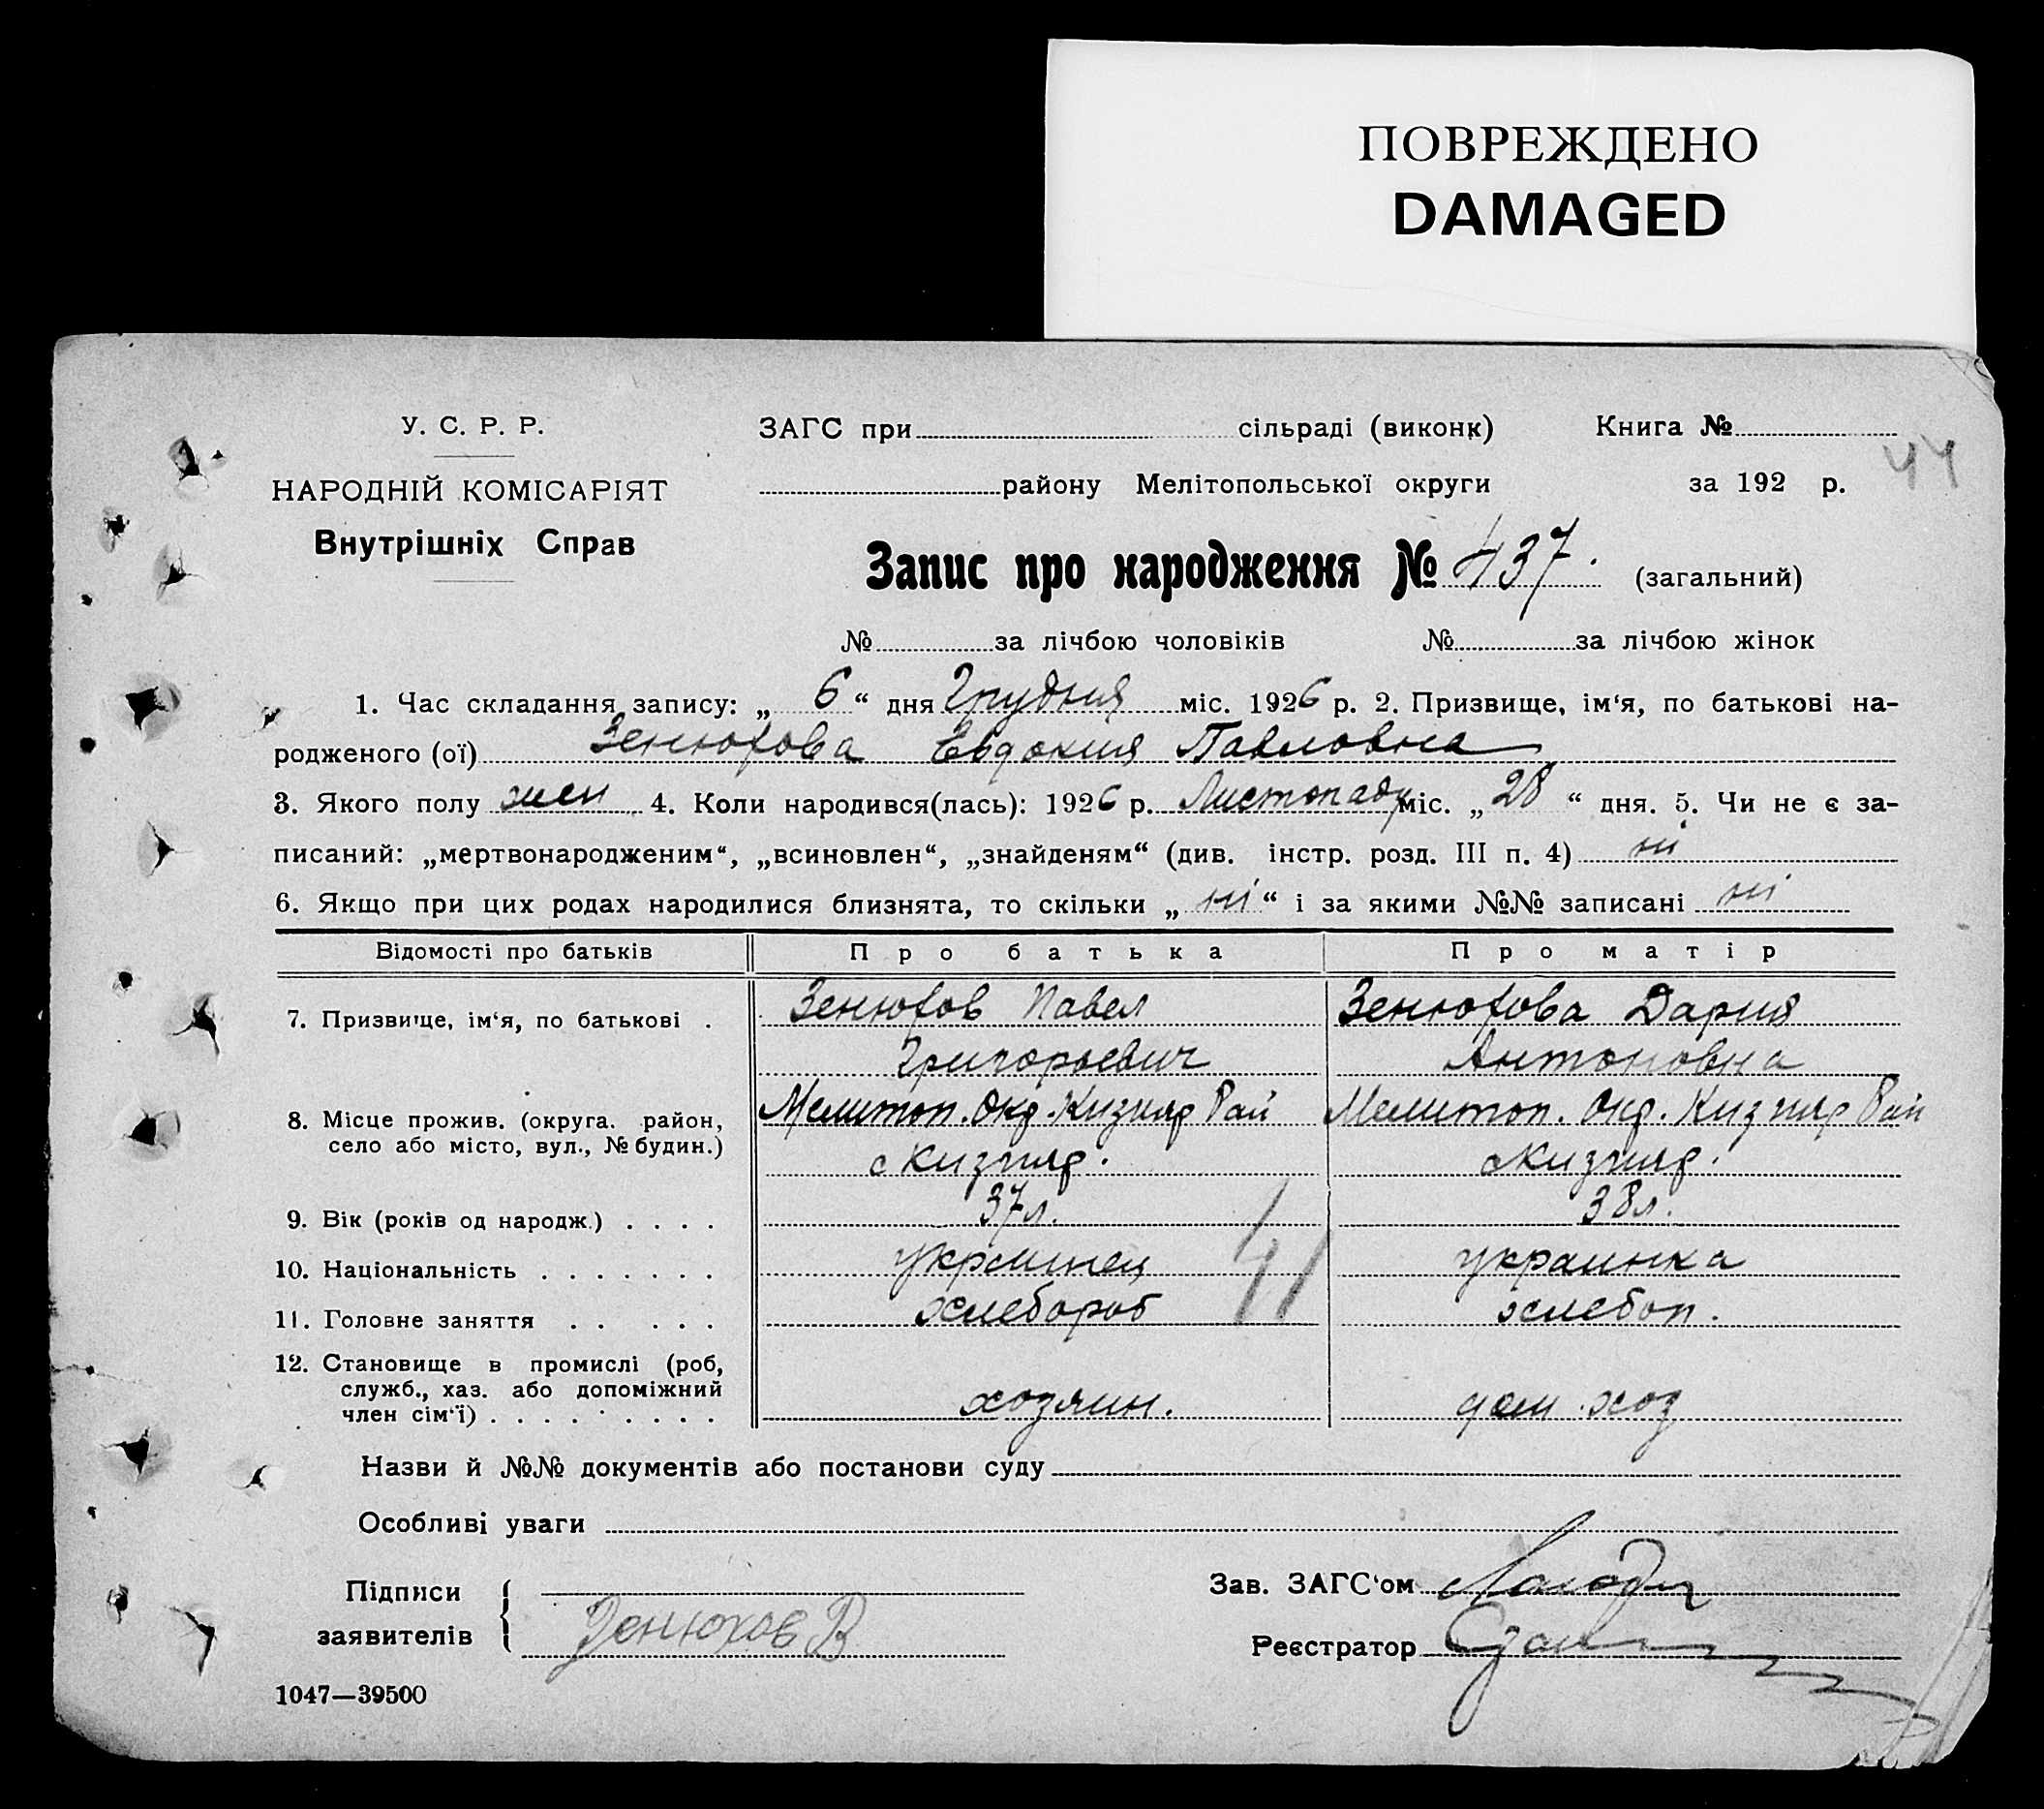 ПОВРЕЖДЕНО
DAMAGED
У. С. Р. Р.
НАРОДНІЙ КОМІСАРІЯТ
Внутрішніх Справ
ЗАГС при сільраді (виконк) Книга №
44
району Мелітопольської округи за 192 р.
Запис про народження № 437. (загальний)
№ за лічбою чоловіків № за лічбою жінок
1. Час складання запису: „ 6 “ дня Грудня міс. 1926 р. 2. Призвище, ім‘я, по батькові на-
родженого (ої) Зенюхова Евдокия Павловна
3. Якого полу жен 4. Коли народився(лась): 1926 р. Листопаду міс. „ 28 “ дня. 5. Чи не є за-
писаний: „мертвонародженим“, „всиновлен“, „знайденям“ (див. інстр. розд. III п. 4) ні
6. Якщо при цих родах народилися близнята, то скільки „ ні “ і за якими №№ записані ні
Відомості про батьків Про батька Про матір
7. Призвище, ім‘я, по батькові . Зенюхов Павел Зенюхова Дария
Григорьевич Антоновна
8. Місце прожив. (округа. район, Мелитоп. Окр. Кизияр Рай Мелитоп. Окр. Кизияр Рай
село або місто, вул., № будин.) с Кизияр. с Кизияр.
9. Вік (років од народж.) . . . . 37 л. 38 л.
10. Національність . . . . . . . украинец украинка
11. Головне заняття . . . . . хлебороб хлебоп.
12. Становище в промислі (роб,
служб., хаз. або допоміжний
член сім‘ї) . . . . . . . . . хозяин. дом. хоз
Назви й №№ документів або постанови суду
Особливі уваги
Підписи
заявителів Зенюхов В
Зав. ЗАГС‘ом
Реєстратор
1047—39500